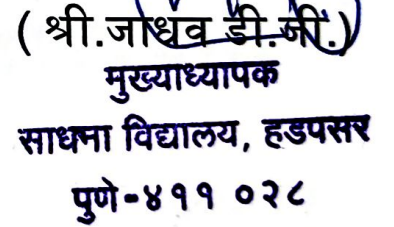 ( श्री.जाधव डी.जी.)
मुख्याध्यापक
साधना विद्यालय, हडपसर
पुणे-४११ ०२८